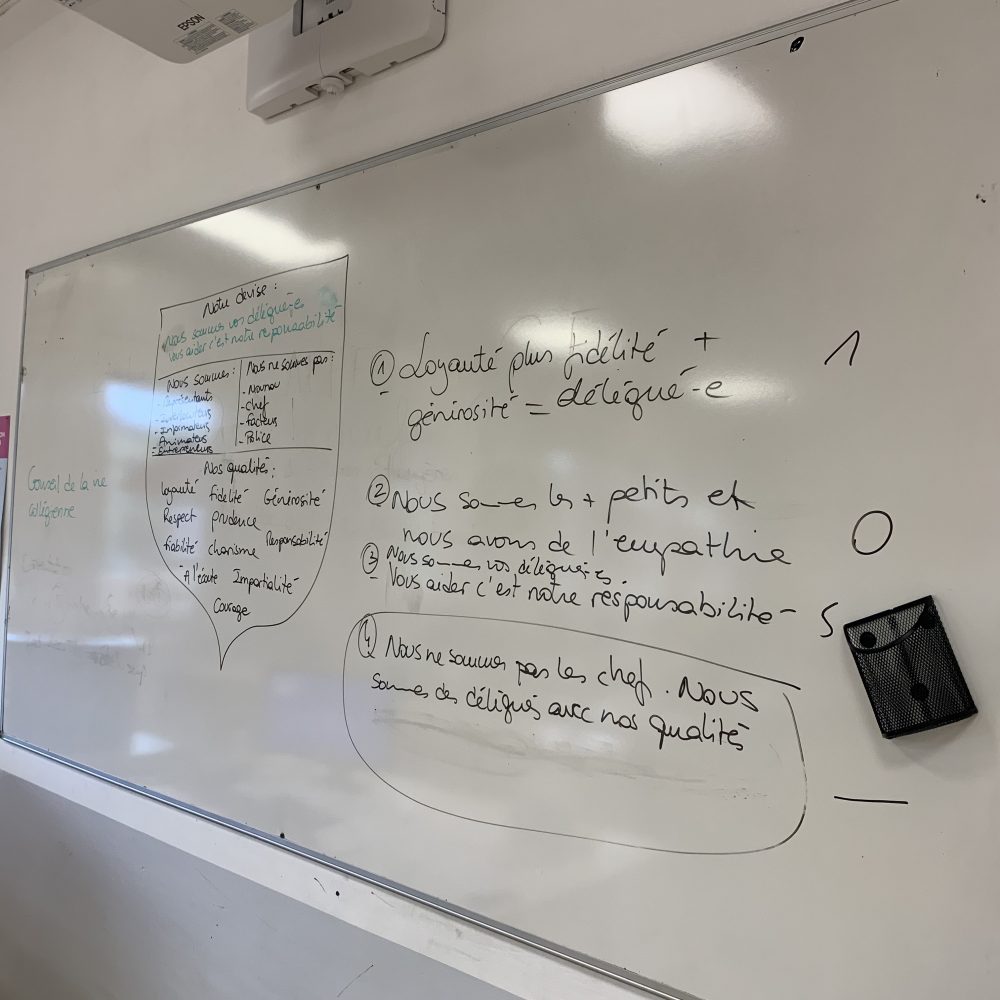 EPSON
Notre devise :
Nous sommes vos délégué-es
Vous aider c'est notre responsabilité
Nous sommes :
- Représentants
- Interlocuteurs
- Informateurs
- Animateurs
- Entrepreneurs
Nous ne sommes pas :
- Nounou
- Chef
- Facteurs
- Police
Nos qualités :
loyauté fidélité Générosité
Respect prudence
fiabilité charisme Responsabilité
A l'écoute Impartialité
Courage
Conseil de la vie
collégienne
① Loyauté plus fidélité +
générosité = délégué-e
1
② Nous sommes les + petits et
nous avons de l'empathie
0
③ Nous sommes vos délégué-es.
Vous aider c'est notre responsabilité
5
④ Nous ne sommes pas les chef. Nous
sommes des délégués avec nos qualités
—